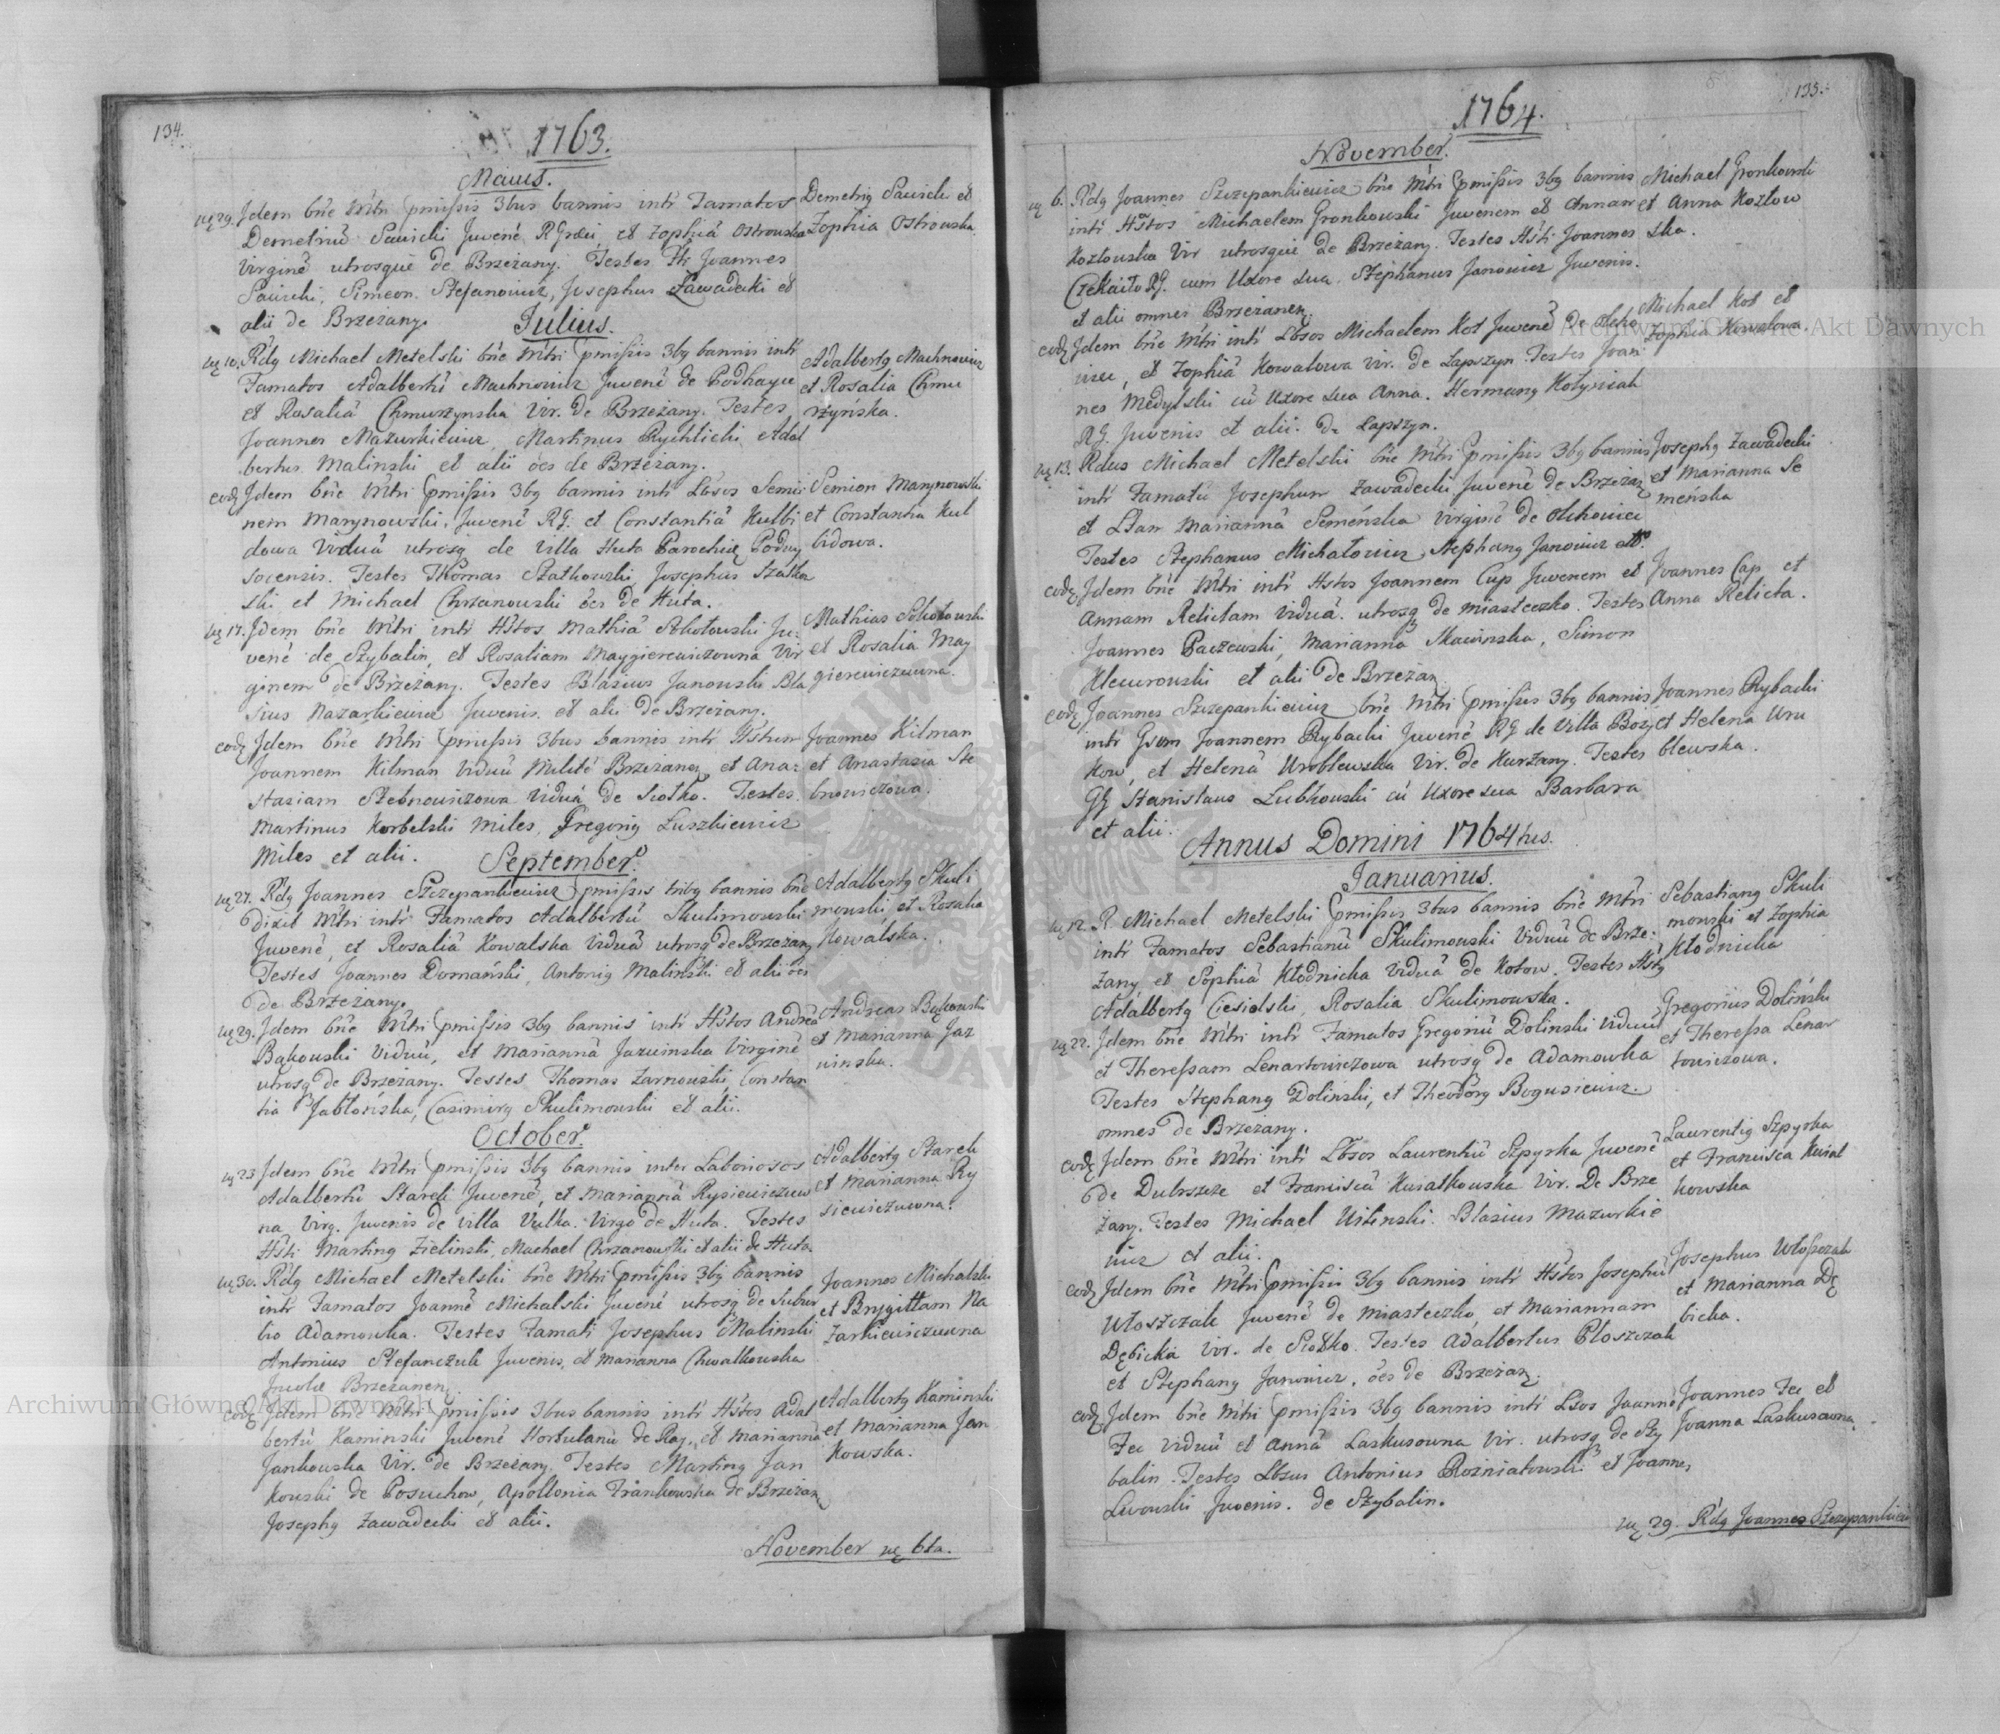 134.
1763.
Maius.
ię 29. Jdem bñe Mtri pmissis 3bus bannis intr Famatos
Demetriū Sawicki Juvenē R Graeci, et Zophiā Ostrowska
Virginē utrosque de Brzeżany. Testes Joannes
Sawicki, Simeon Stefanowicz, Josephus Zawadecki et
alii de Brzezany.
Demetrig Sawicki et
Zophia Ostrowska
Julius.
ię 10. Rdg Michael Metelski bñe Mtri pmissis 3bg bannis intr
Famatos Adalbertū Machniowicz Juvenē de Podhayce
et Rosaliā Chmurzynska Vir. de Brzeżany. Testes
Joannes Mazurkiewicz, Martinus Rychlicki, Adal
bertus Malinski et alii oēs de Brzeżany.
Adalbertg Machnowicz
et Rosalia Chmu
rzyńska.
eodę Jdem bñe Mtri pmissis 3bg bannis intr Lbsos Semio
nem Marynowski, Juvenē RG. et Constantiā Kulbi
dowa Viduā utrosq de Villa Huta Parochię Podwy
socensis. Testes Thomas Szatkowski, Josephus Szatko
ski et Michael Chrzanowski oēs de Huta.
Semion Marynowski
et Constantia Kul
bidowa.
ię 17. Jdem bñe Mtri intr Hstos Mathiā Sokołowski Ju-
venē de Szybalin, et Rosaliam Maygierewiczowna Vir
ginem de Brzeżany. Testes Blasius Janowski, Bla
sius Nazarkiewicz Juvenis et alii de Brzeżany.
Mathias Sokołowski
et Rosalia May
gierewiczowna.
eodę Jdem bñe Mtri pmissis 3bus bannis intr Hstum
Joannem Kilman Viduū Militē Brzezanen, et Ana-
stasiam Stebnowiczowa Viduā de Siołko. Testes
Martinus Korbelski Miles, Gregorig Luszkiewicz
Miles et alii.
Joannes Kilman
et Anastasia Ste
bnowiczowa.
September.
ię 27. Rdg Joannes Szczepankiewicz pmissis tribg bannis bñe
dixit Mtri intr Famatos Adalbertū Skulimowski
Juvenē, et Rosaliā Kowalska Viduā utrosq de Brzeżany
Testes Joannes Domański, Antonig Malinski et alii oēs
de Brzeżany.
Adalbertg Skuli
mowski et Rosalia
Kowalska.
ię 29. Jdem bñe Mtri pmissis 3bg bannis intr Hstos Andreā
Bąkowski Viduū, et Mariannā Jazwinska Virginē
utrosq de Brzeżany. Testes Thomas Zarnowski, Constan
tia Jabłońska, Casimirg Skulimowski et alii.
Andreas Bąkowski
et Marianna Jaz
winska.
October.
ię 23 Jdem bñe Mtri pmissis 3bg bannis inter Laboriosos
Adalbertū Starek Juvenē, et Mariannā Rysiewiczuw
na, Virg. Juvenis de villa Vulka. Virgo de Huta. Testes
Hsti Marting Zielinski, Machael Chrzanowski et alii de Huta.
Adalbertg Starek
et Marianna Ry
siewiczuwna.
ię 30. Rdg Michael Metelski bñe Mtri pmissis 3bg bannis
intr Famatos Joannē Michalski Juvenē utrosq de Subur
bio Adamowka. Testes Famati Josephus Malinski
Antonius Stefanczuk Juvenis, et Marianna Chwalkowska
Jncolæ Brzezanen.
Joannes Michalski
et Brygittam Na
zarkiewiczuwna
eodę Jdem bñe Mtri pmissis 3bus bannis intr Hstos Adal
bertū Kaminski Juvenē Hortulanū de Ray, et Mariannā
Jankowska Vir. de Brzeżany. Testes Marting Jan
kowski de Posuchow, Apollonia Frankowska de Brzeżan
Josephg Zawadecki et alii.
Adalbertg Kaminski
et Marianna Jan
kowska.
November ię 6ta.
135.
1764.
November.
ię 6. Rdg Joannes Szczepankiewicz bñe Mtri pmissis 3bg bannis
intr Hstos Michaelem Gronkowski Juvenem et Annam
Kozłowska Vir utrosque de Brzeżany. Testes Hsti Joannes
Czekaito RG. cum Uxore sua, Stephanus Janowicz Juvenis.
et alii omnes Brzeżanen.
Michael Gronkowski
et Anna Kozłow
ska.
eodę Jdem bñe Mtri intr Lbsos Michaelem Kot Juvenē de Olcho
wiec, et Zophiā Kowalowa Vir. de Lapszyn. Testes Joan
nes Medylski cū Uxore sua Anna. Hermang Kotyniak
RG. Juvenis et alii. de Lapszyn.
Michael Kot et
Zophia Kowalowa
ię 13. Rdus Michael Metelski bñe Mtri pmissis 3bg bannis
intr Famatū Josephum Zawadecki Juvenē de Brzeżan
et Lsam Mariannā Semeńska virginē de Olchowiec
Testes Stephanus Michałowicz, Stephang Janowicz
Josephg Zawadecki
et Marianna Se
meńska
eodę Jdem bñe Mtri intr Hstos Joannem Cap Juvenem et
Annam Relictam Viduā. utrosq de Miasteczko. Testes
Joannes Paczewski, Marianna Skawinska, Simon
Klewrowski et alii de Brzeżan
Joannes Cap et
Anna Relicta.
eodę Joannes Szczepankiewicz bñe Mtri pmissis 3bg bannis
intr Gsum Joannem Rybacki Juvenē RG de Villa Boży
kow, et Helenā Wroblewska Vir. de Kurzany. Testes
Stanislaus Lubkowski cū Uxore sua Barbara
et alii.
Joannes Rybacki
et Helena Wru
blewska.
Annus Domini 1764tus.
Januarius.
ię 12. R. Michael Metelski pmissis 3bus bannis bñe Mtri
intr Famatos Sebastianū Skulimowski Viduū de Brze-
zany et Sophiā Kłodnicka Viduā de Kotow. Testes Hstg
Adalbertg Ciesielski, Rosalia Skulimowska.
Sebastiang Skuli
mowski et Zophia
Kłodnicka
ię 22. Jdem bñe Mtri intr Famatos Gregoriū Dolinski Viduū
et Theressam Lenartowiczowa utrosq de Adamowka
Testes Stephang Dolinski, et Theodorg Bogusiewicz
omnes de Brzeżany.
Gregorius Doliński
et Theressa Lenar
towiczowa.
eodę Jdem bñe Mtri intr Lbsos Laurentiū Szpyrka Juvenē
de Dubszcze et Franciscā Kwiatkowska Vir. De Brze
zany. Testes Michael Uilinski. Blasius Mazurkie
wicz et alii.
Laurentig Szpyrka
et Francisca Kwiat
kowska
eodę Jdem bñe Mtri pmissis 3bg bannis intr Hstos Josephū
Włoszczak Juvenē de Miasteczko, et Mariannam
Dębicka Vir. de Siołko. Testes Adalbertus Płoszczak
et Stephang Janowicz, oēs de Brzeżan.
Josephus Włoszczak
et Marianna Dę
bicka.
eodę Jdem bñe Mtri pmissis 3bg bannis intr Lsos Joannē
Fec Viduū et Annā Laskusowna Vir. utrosq de Szy
balin. Testes Lbsus Antonius Rozniatowski et Joannes
Lwowski Juvenis. de Szybalin.
Joannes Fec et
Joanna Laskusowna.
ię 29. Rdg Joannes Szczepankiewicz
Archiwum Główne Akt Dawnych
Archiwum Główne Akt Dawnych